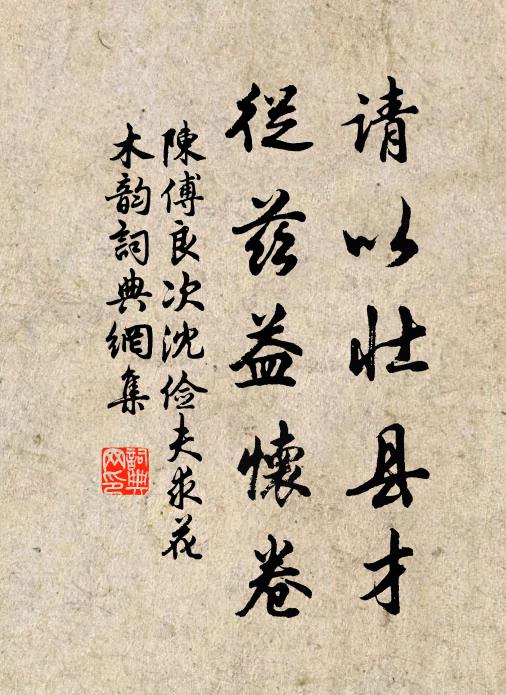 请以壮县才
從兹益懷卷
陳傅良次沈俭夫求花
木韵詞典網集
詞典网印